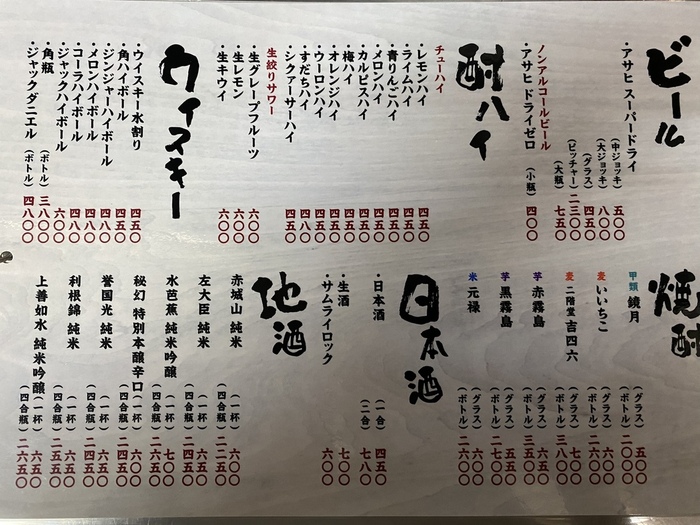 ビール
・アサヒ スーパードライ
(中ジョッキ) 五〇〇
(大ジョッキ) 八〇〇
(グラス) 四五〇
(ピッチャー) 二三〇〇
(大瓶) 七五〇
ノンアルコールビール
・アサヒ ドライゼロ (小瓶) 四〇〇
酎ハイ
チューハイ
・レモンハイ 四五〇
・ライムハイ 四五〇
・青りんごハイ 四五〇
・メロンハイ 四五〇
・カルピスハイ 四五〇
・梅ハイ 四五〇
・オレンジハイ 四五〇
・ウーロンハイ 四五〇
・すだちハイ 四五〇
・シクァーサーハイ 四五〇
生絞りサワー
・生グレープフルーツ 六〇〇
・生レモン 六〇〇
・生キウイ 六〇〇
ウィスキー
・ウィスキー水割り 四五〇
・角ハイボール 四五〇
・ジンジャーハイボール 四八〇
・メロンハイボール 四八〇
・コーラハイボール 四八〇
・ジャックハイボール 六〇〇
・角瓶 (ボトル) 三八〇〇
・ジャックダニエル (ボトル) 四八〇〇
焼酎
甲類 鏡月
(グラス) 五〇〇
(ボトル) 二〇〇〇
麦 いいちこ
(グラス) 六〇〇
(ボトル) 二六〇〇
麦 二階堂吉四六
(グラス) 七〇〇
(ボトル) 三八〇〇
芋 赤霧島
(グラス) 六五〇
(ボトル) 三五〇〇
芋 黒霧島
(グラス) 六〇〇
(ボトル) 二五〇〇
米 元禄
(グラス) 六〇〇
(ボトル) 二六〇〇
日本酒
・日本酒
(一合) 四五〇
(二合) 七八〇
・生酒 七〇〇
・サムライロック 六〇〇
地酒
赤城山 純米
(一杯) 六〇〇
(四合瓶) 二二五〇
左大臣 純米
(一杯) 六五〇
(四合瓶) 二四五〇
水芭蕉 純米吟醸
(一杯) 七〇〇
(四合瓶) 二六五〇
秘幻 特別本醸辛口
(一杯) 六〇〇
(四合瓶) 二四五〇
誉国光 純米
(一杯) 六五〇
(四合瓶) 二四五〇
利根錦 純米
(一杯) 六五〇
(四合瓶) 二五五〇
上善如水 純米吟醸
(一杯) 六五〇
(四合瓶) 二六五〇